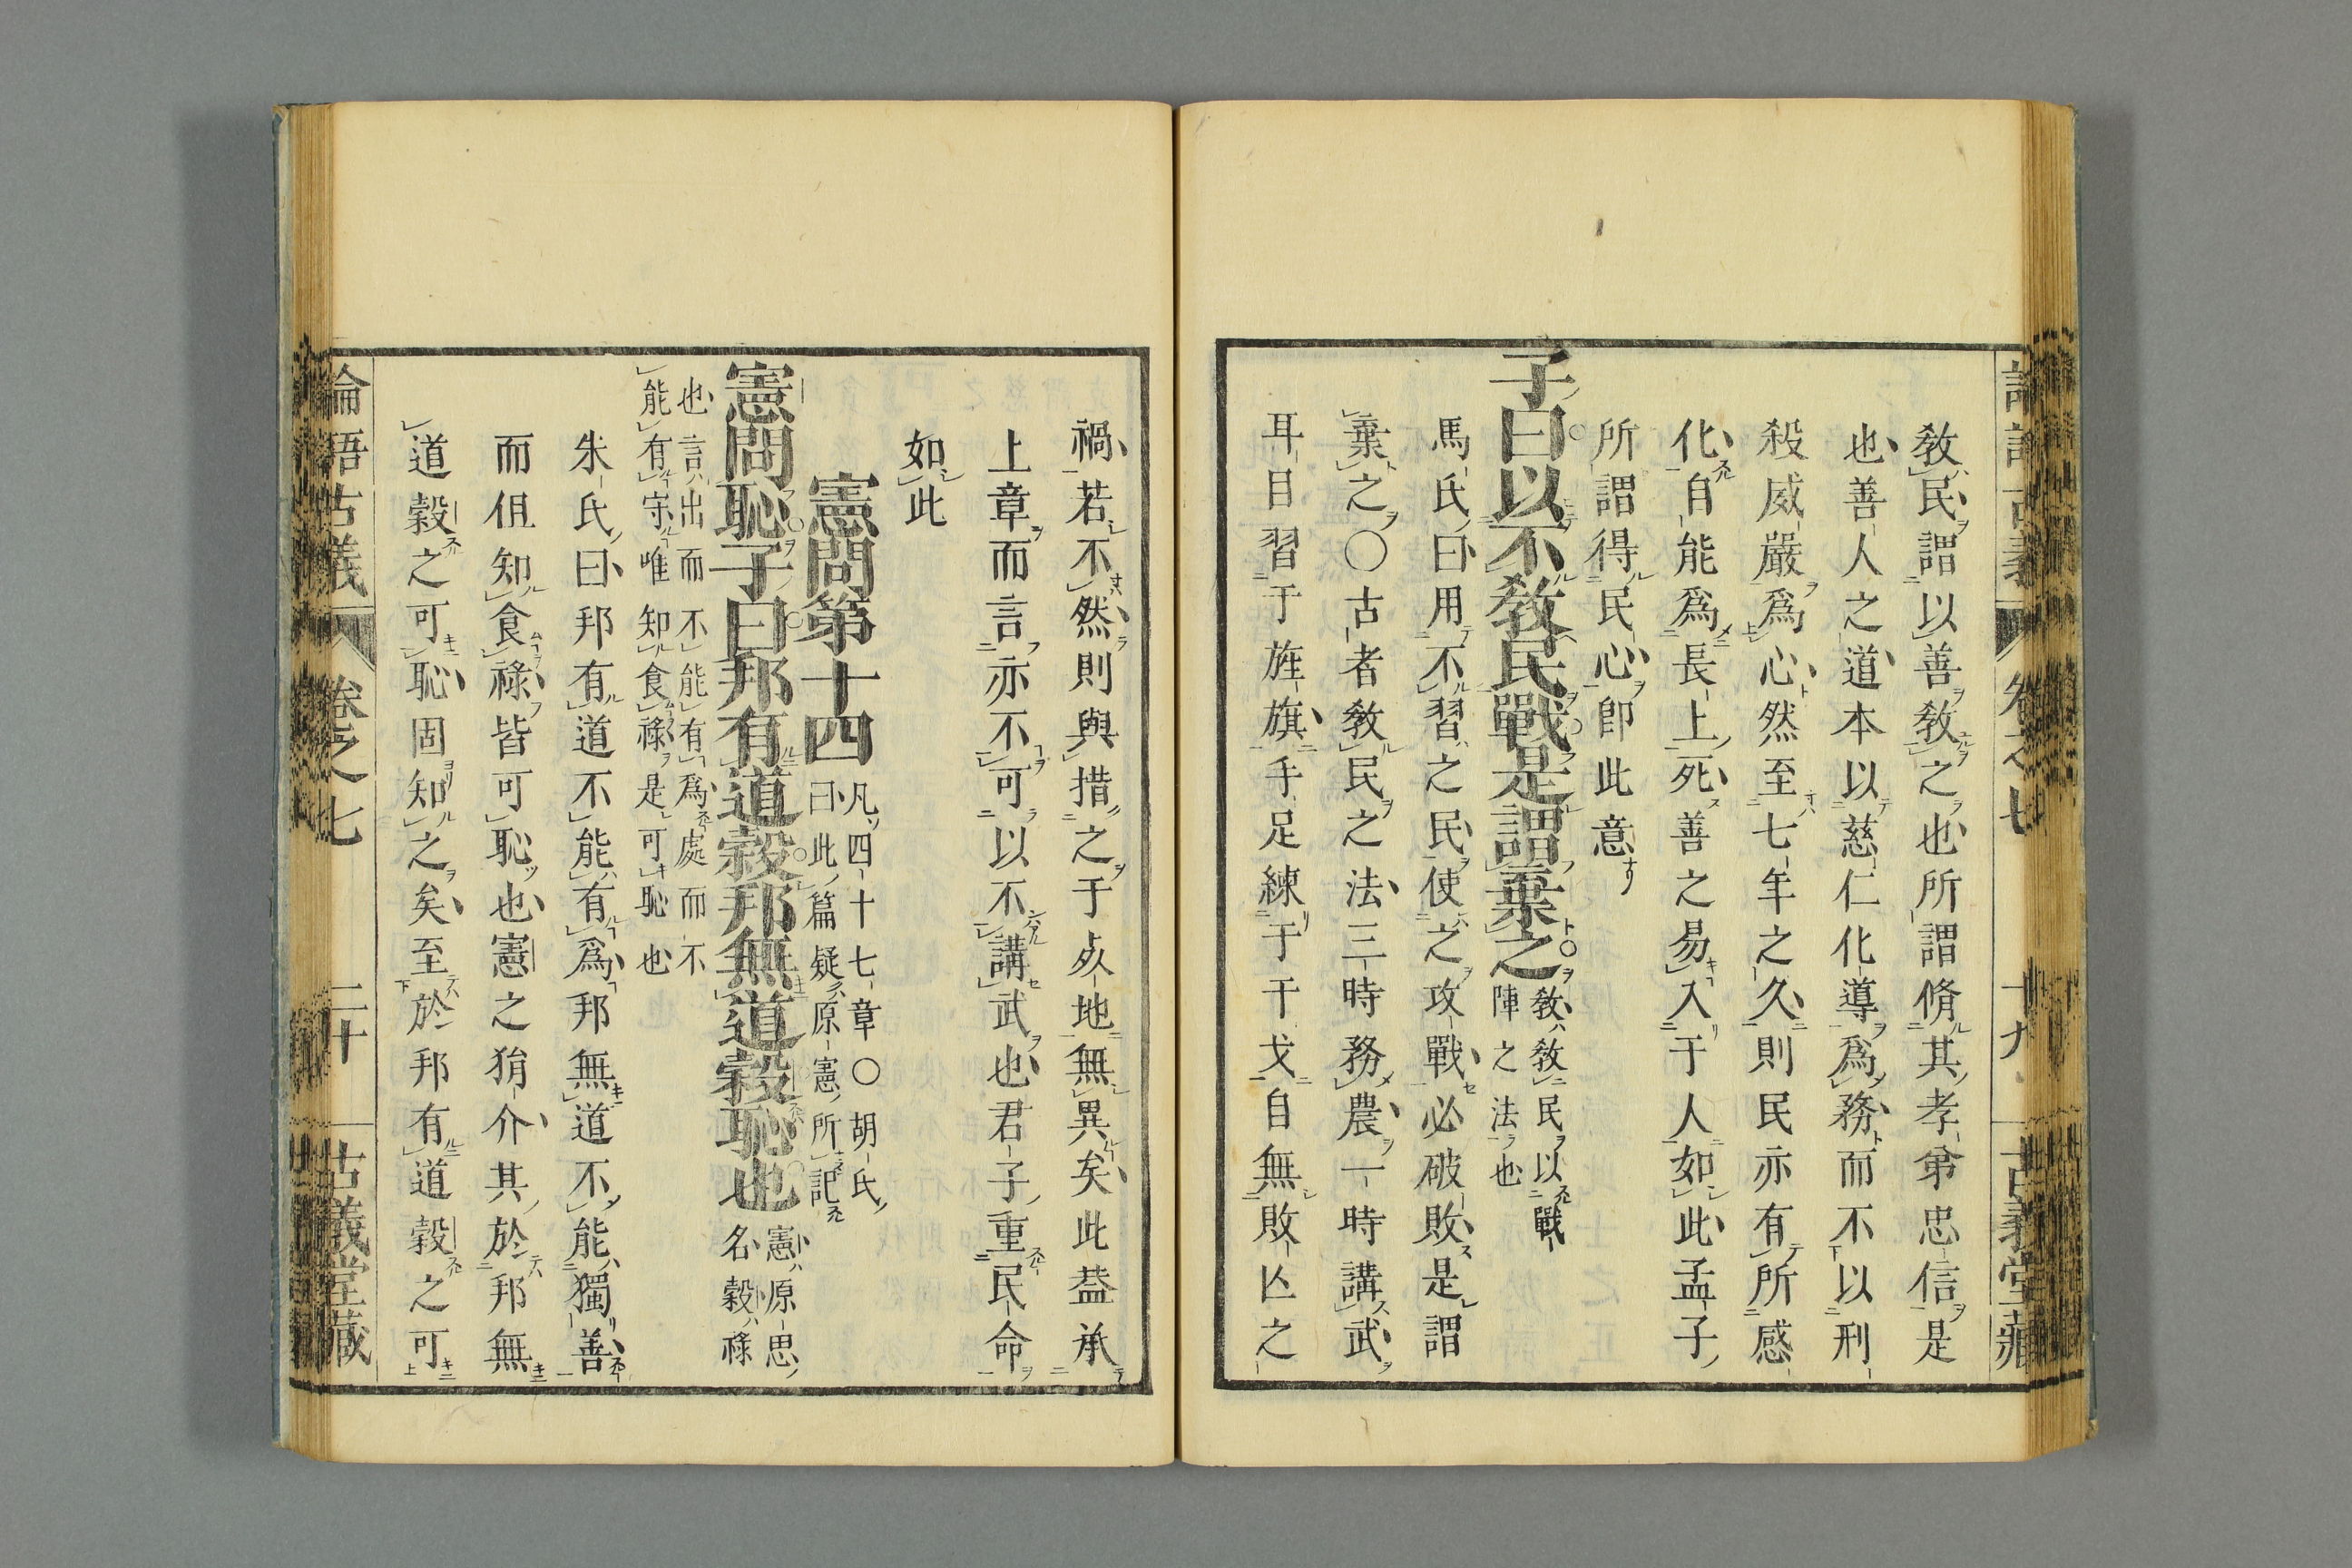 教民謂以善教之也所謂脩其孝弟忠信是
也善人之道本以慈仁化導爲務而不以刑
殺威嚴爲心然至七年之久則民亦有所感
化自能爲長上死善之易入于人如此孟子
所謂得民心卽此意
子曰以不教民戰是謂棄之
教教民以戰
陣之法也
馬氏曰用不習之民使之攻戰必破敗是謂
棄之〇古者教民之法三時務農一時講武
耳目習于旌旗手足練于干戈自無敗亾之
禍若不然則與措之于死地無異矣此葢承
上章而言亦不可以不講武也君子重民命
如此
憲問第十四
凡四十七章〇胡氏
曰此篇疑原憲所記
憲問恥子曰邦有道穀邦無道穀恥也
憲原思
名穀祿
也言出而不能有爲處而不
能有守唯知食祿是可恥也
朱氏曰邦有道不能有爲邦無道不能獨善
而但知食祿皆可恥也憲之狷介其於邦無
道穀之可恥固知之矣至於邦有道穀之可
論語古義 卷之七 二十 古義堂藏